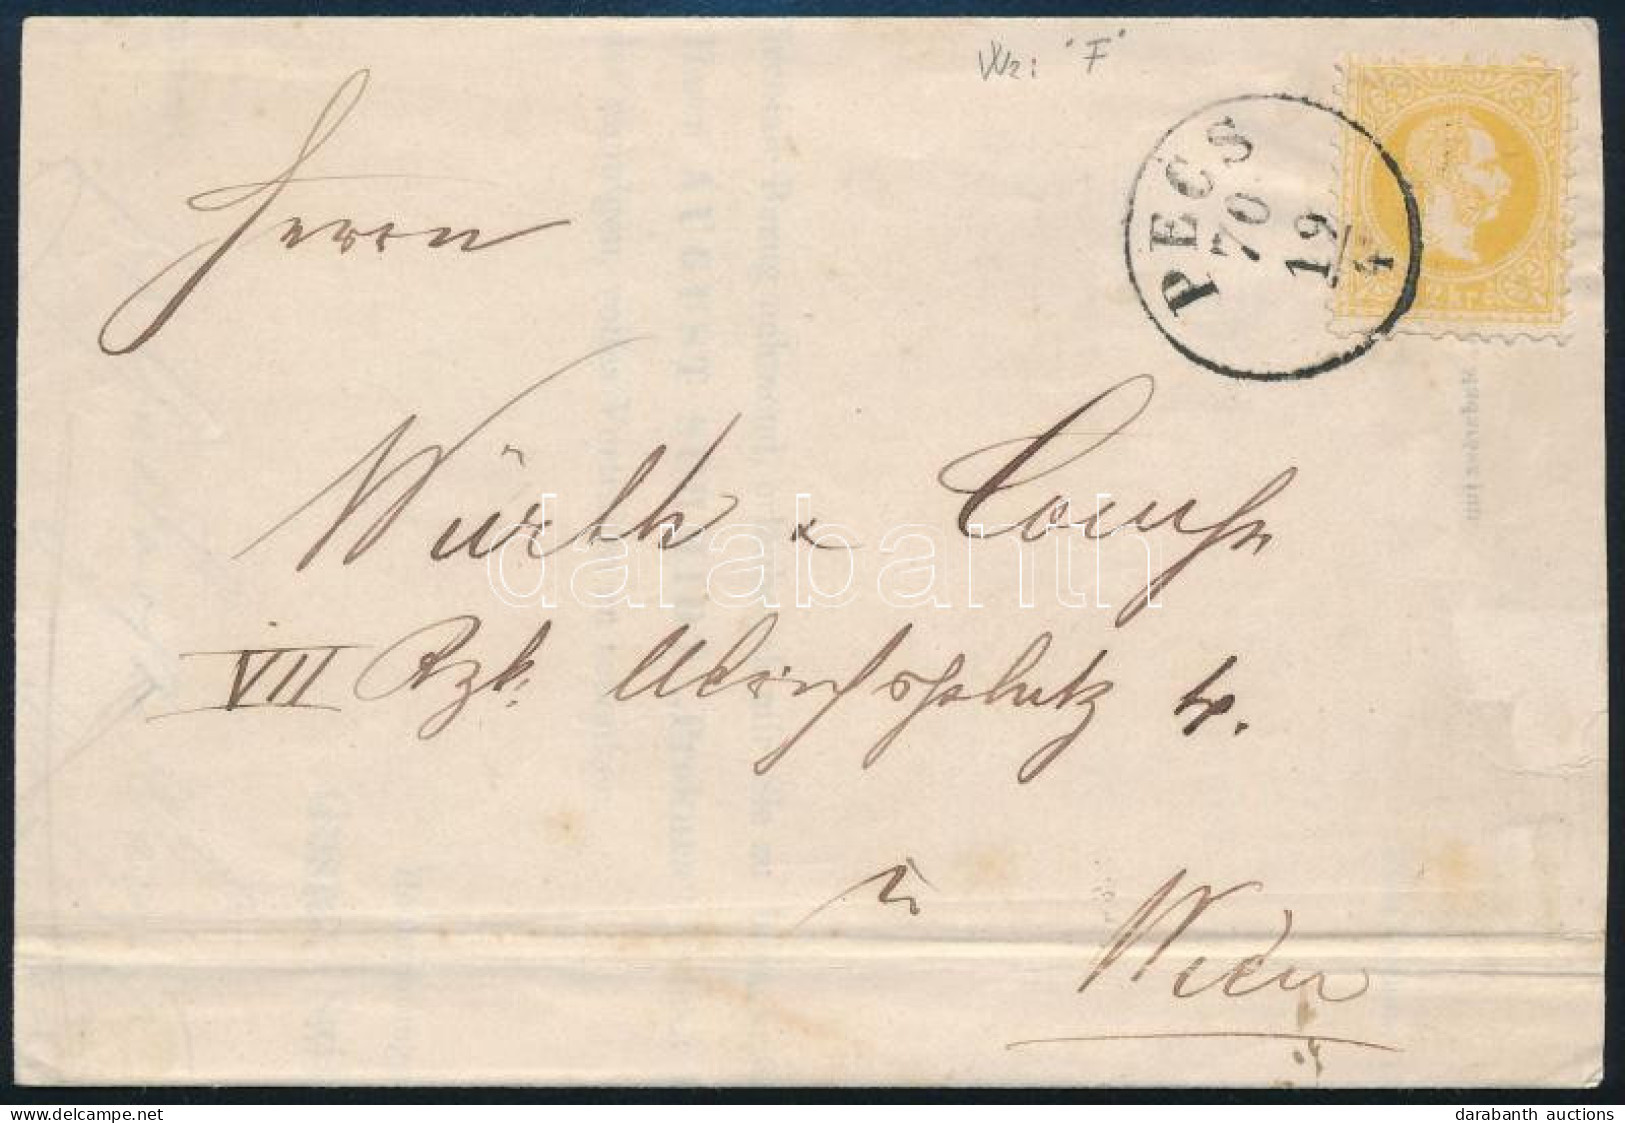 Wz: "F"
PÉCS
70
19
4
kr.
Herrn
Würth & Comp
VII Bzk. Ulrichsplatz 4.
in
Wien
darabanth
delcampe.net
darabanth auctions